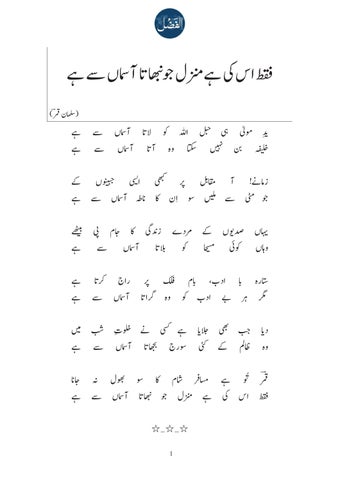 الفضل
فقط اس کی ہے منزل جو نبھاتا آسماں سے ہے
(سلمان قمر)
یدِ مولیٰ ہی حبل اللہ کو لاتا آسماں سے ہے
خلیفہ بن نہیں سکتا وہ آتا آسماں سے ہے
زمانے! آ مقابل پر کبھی ایسی جبینوں کے
جو مٹی سے ملیں سو اِن کا ناطہ آسماں سے ہے
یہاں صدیوں کے مردے زندگی کا جام پی بیٹھے
وہاں کوئی مسیحا کو بلاتا آسماں سے ہے
ستارہ با ادب، بام فلک پر راج کرتا ہے
مگر ہر بے ادب کو وہ گراتا آسماں سے ہے
دیا جب بھی جلایا ہے کسی نے خلوتِ شب میں
وہ ظالم کے کئی سورج بجھاتا آسماں سے ہے
قمرؔ تُو ہے مسافر شام کا سو بھول نہ جانا
فقط اس کی ہے منزل جو نبھاتا آسماں سے ہے
☆…☆…☆
1